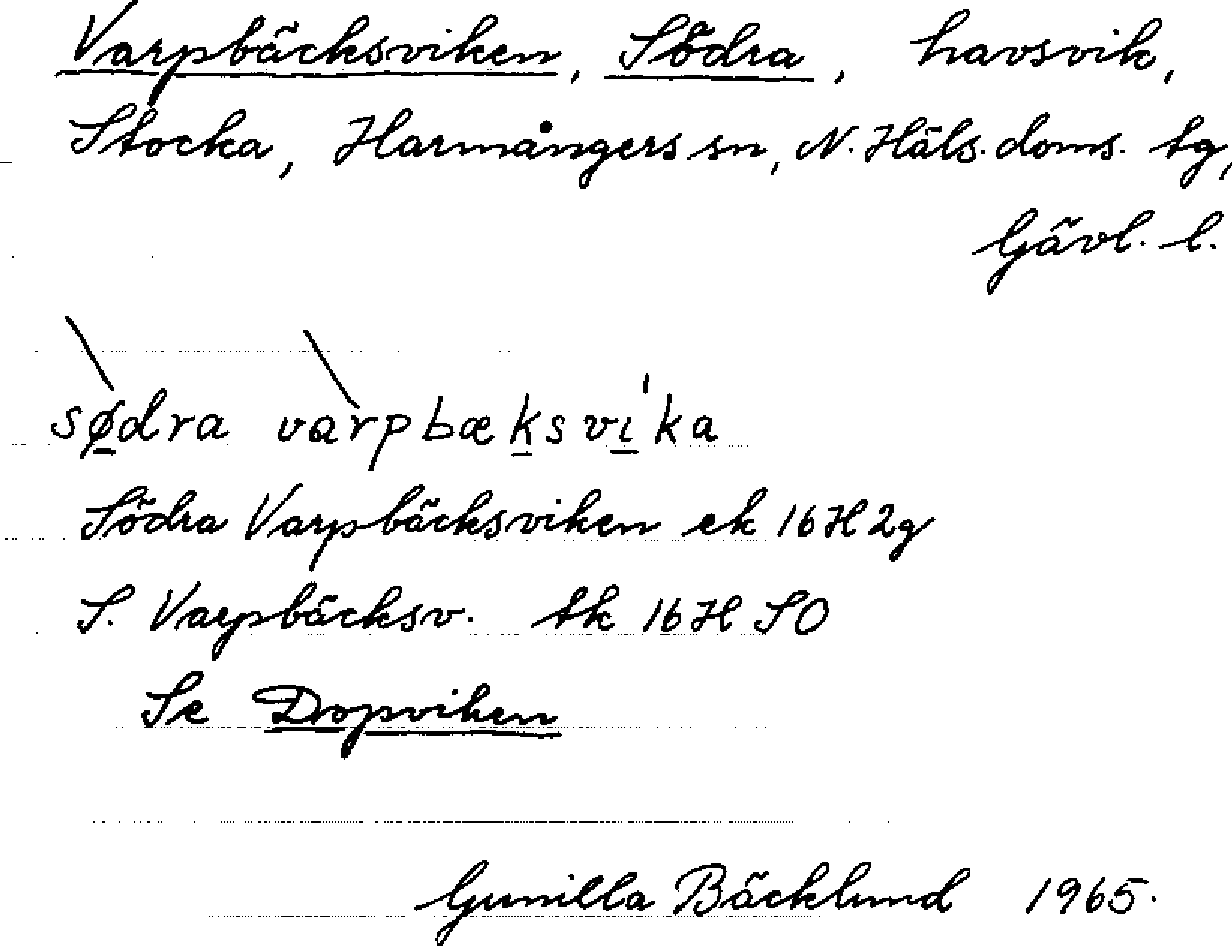 Varpbäcksviken, Södra, havsvik,
Stocka, Harmångers sn, N. Häls. doms. tg,
Gävl. l.
sødra varpbæksvi'ka
Södra Varpbäcksviken ek 16H2g
S. Varpbäcksv. tk 16H SO
Se Dropviken
Gunilla Bäcklund 1965.